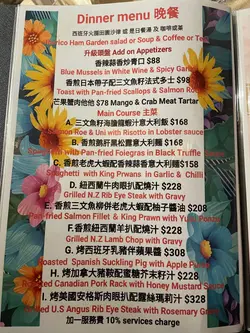 Dinner menu 晚餐
西班牙火腿田園沙律 或 是日餐湯 及 咖啡或茶
Ham Garden salad or Soup & Coffee or Tea
升級頭盤 Add on Appetizers
香辣蒜香炒青口 $88
Blue Mussels in White Wine & Spicy Garlic
香煎日本帶子配三文魚籽法式多士 $98
Toast with Pan-fried Scallops & Salmon Roe
芒果蟹肉他他 $78 Mango & Crab Meat Tartar
Main Course 主菜
A. 三文魚籽海膽龍蝦汁意大利飯 $168
Salmon Roe & Uni with Risotto in Lobster sauce
B. 香煎鵝肝黑松露意大利飯 $168
with Pan-fried Foiegras in Black Truffle
C. 香煎老虎大蝦配香辣蒜香意大利麵 $158
Spaghetti with King Prwans in Garlic & Chilli
D. 紐西蘭牛肉眼扒配燒汁 $228
Grilled N.Z Rib Eye Steak with Gravy
E. 香煎三文魚柳拼老虎大蝦配柚子醬油 $208
Pan-fried Salmon Fillet & King Prawn with Yuzu
F. 香煎紐西蘭羊扒配燒汁 $228
Grilled N.Z Lamb Chop with Gravy
G. 烤西班牙乳豬伴蘋果醬 $308
Roasted Spanish Suckling Pig with Apple
H. 烤加拿大豬鞍配蜜糖芥末籽汁 $228
Canadian Pork Rack with Honey Mustard Sauce
I. 烤美國安格斯肉眼扒配露絲瑪莉汁 $328
Grilled U.S Angus Rib Eye Steak with Rosemary
加一服務費 10% services charge